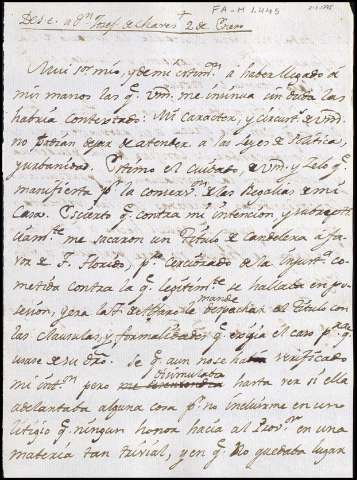 FA-M 1.445
Dese. a Dn. Josef de Chaves 2 de Enero
Mui Sr. mio, y de mi estimn. a haber llegado á
mis manos las q. vmd. me insinua sin duda las
habria contextado: Mi caracter, y circunst. de vmd.
no podrian dexar de atender a las leyes de Politica,
y urbanidad. Estimo el cuidado de vmd. y zelo q.
manifiesta pr. la conservn. de las Regalias de mi
Casa. Es cierto q. contra mi intencion, y subrepti
ciamte. me sacaron un Titulo de Candelera a fa-
vor de F. Florido, pr. cercionado de la injusta.
cometida contra la q. legitimte. se hallaba en po-
sesion, y era la mande despachar el Titulo con
las clausulas, y formalidades q. exigia el caso pa. q.
usase de su dro. Se q. aun no se ha verificado
mi intn. pero disimulaba hasta ver si ella
adelantaba alguna cosa pr. no incluirme en un
litigio q. ningun honor hacia al Provr. en una
materia tan trivial, y en q. no quedaba lugar